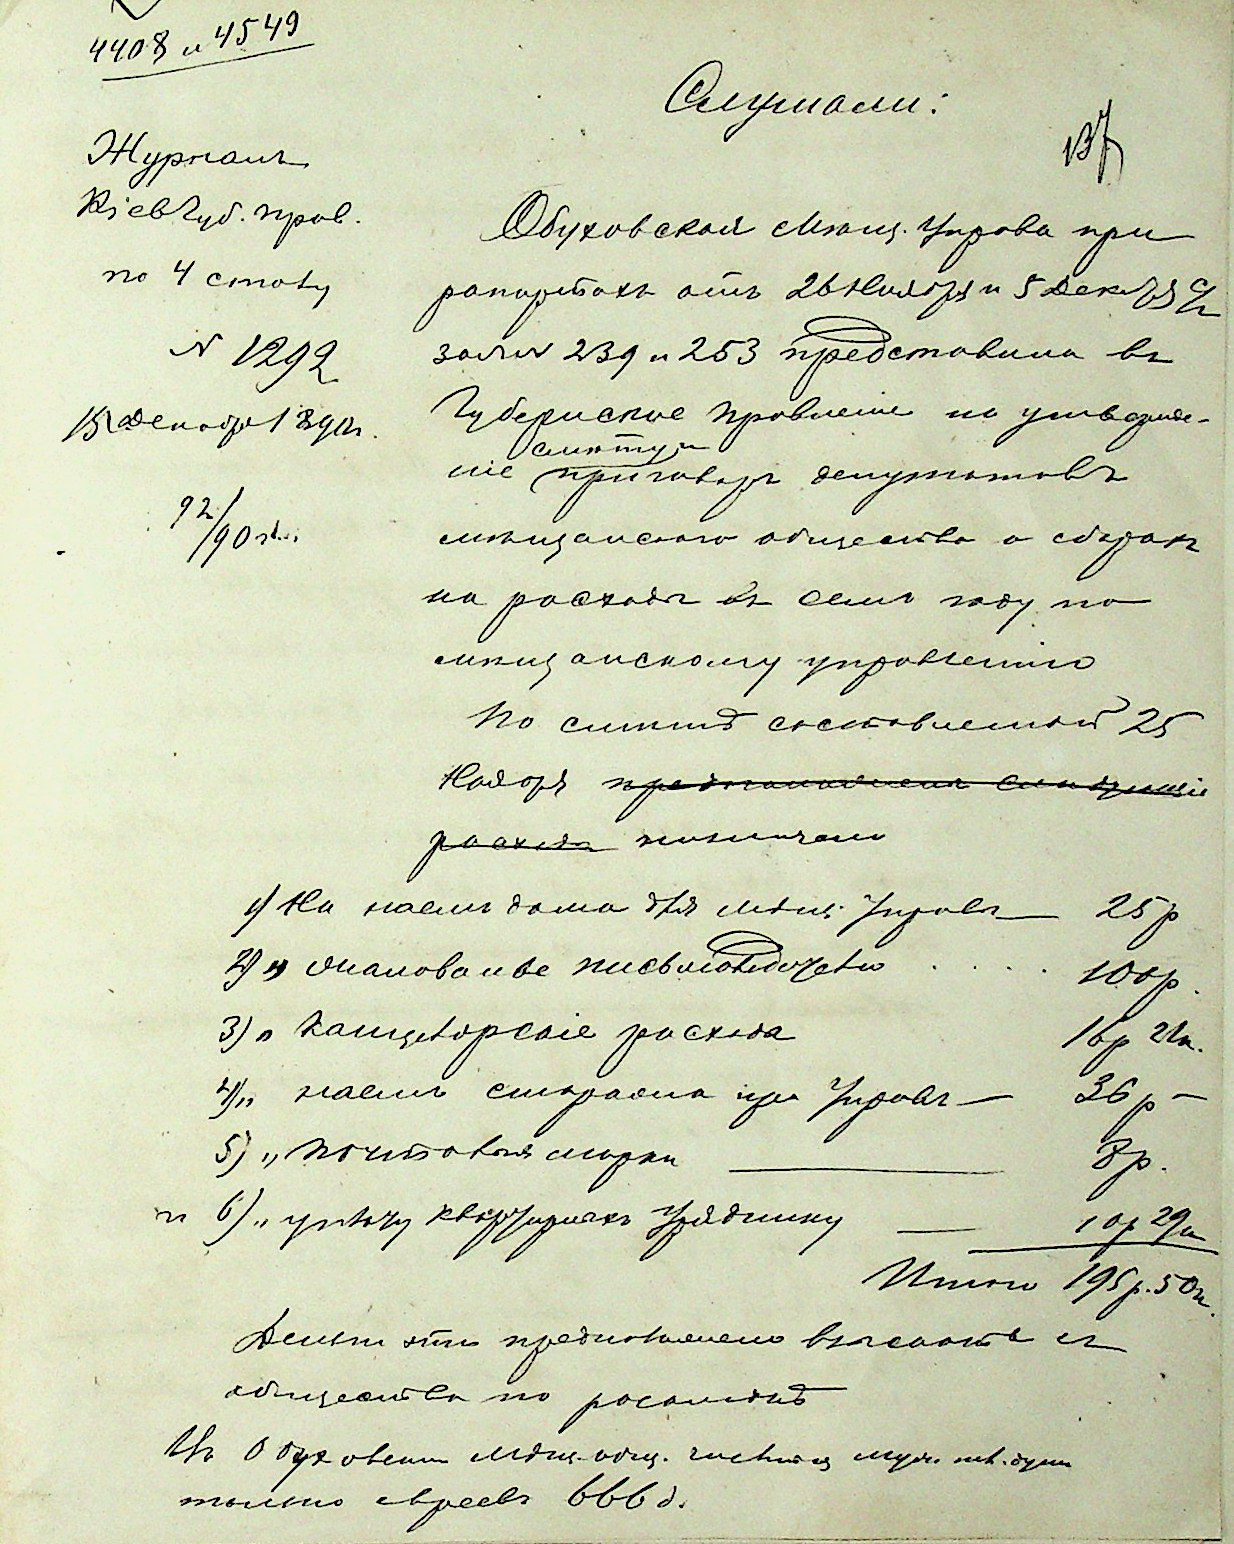 4408 и 4549
Слушали:
137
Журналъ
Кіев Губ. прав.
по 4 столу
N 1292
15 Декабря 1890 г.
92/90
Обуховская Мѣщ. Управа при
рапортахъ отъ 26 Ноября и 5 Декабря с/г
за №№ 239 и 253 представила въ
Губернское Правленіе на утвержде-
смѣту и
ніе приговоръ депутатовъ
мѣщанскаго общества о сборахъ
на расходы въ семъ году по
мѣщанскому управленію
По смѣтѣ составленной 25
Ноября предположены слѣдующіе
расходы назначено
1) На наемъ дома для мѣщ. Управы 25 р
2) " жалованье письмоводителю . . . . 100 р.
3) " Канцелярскіе расходы 16 р 21 к.
4) " наемъ сторожа при Управѣ — 36 р —
5) " почтовыя марки 8 р.
и 6) " уплату квартирныхъ Уряднику — 10 р 29 к
Итого 195 р. 50 к.
Деньги эти предположено взыскать съ
общества по раскладкѣ
Въ Обуховском Мѣщ. общ. числится муж. пола душъ
только евреевъ 666 д.